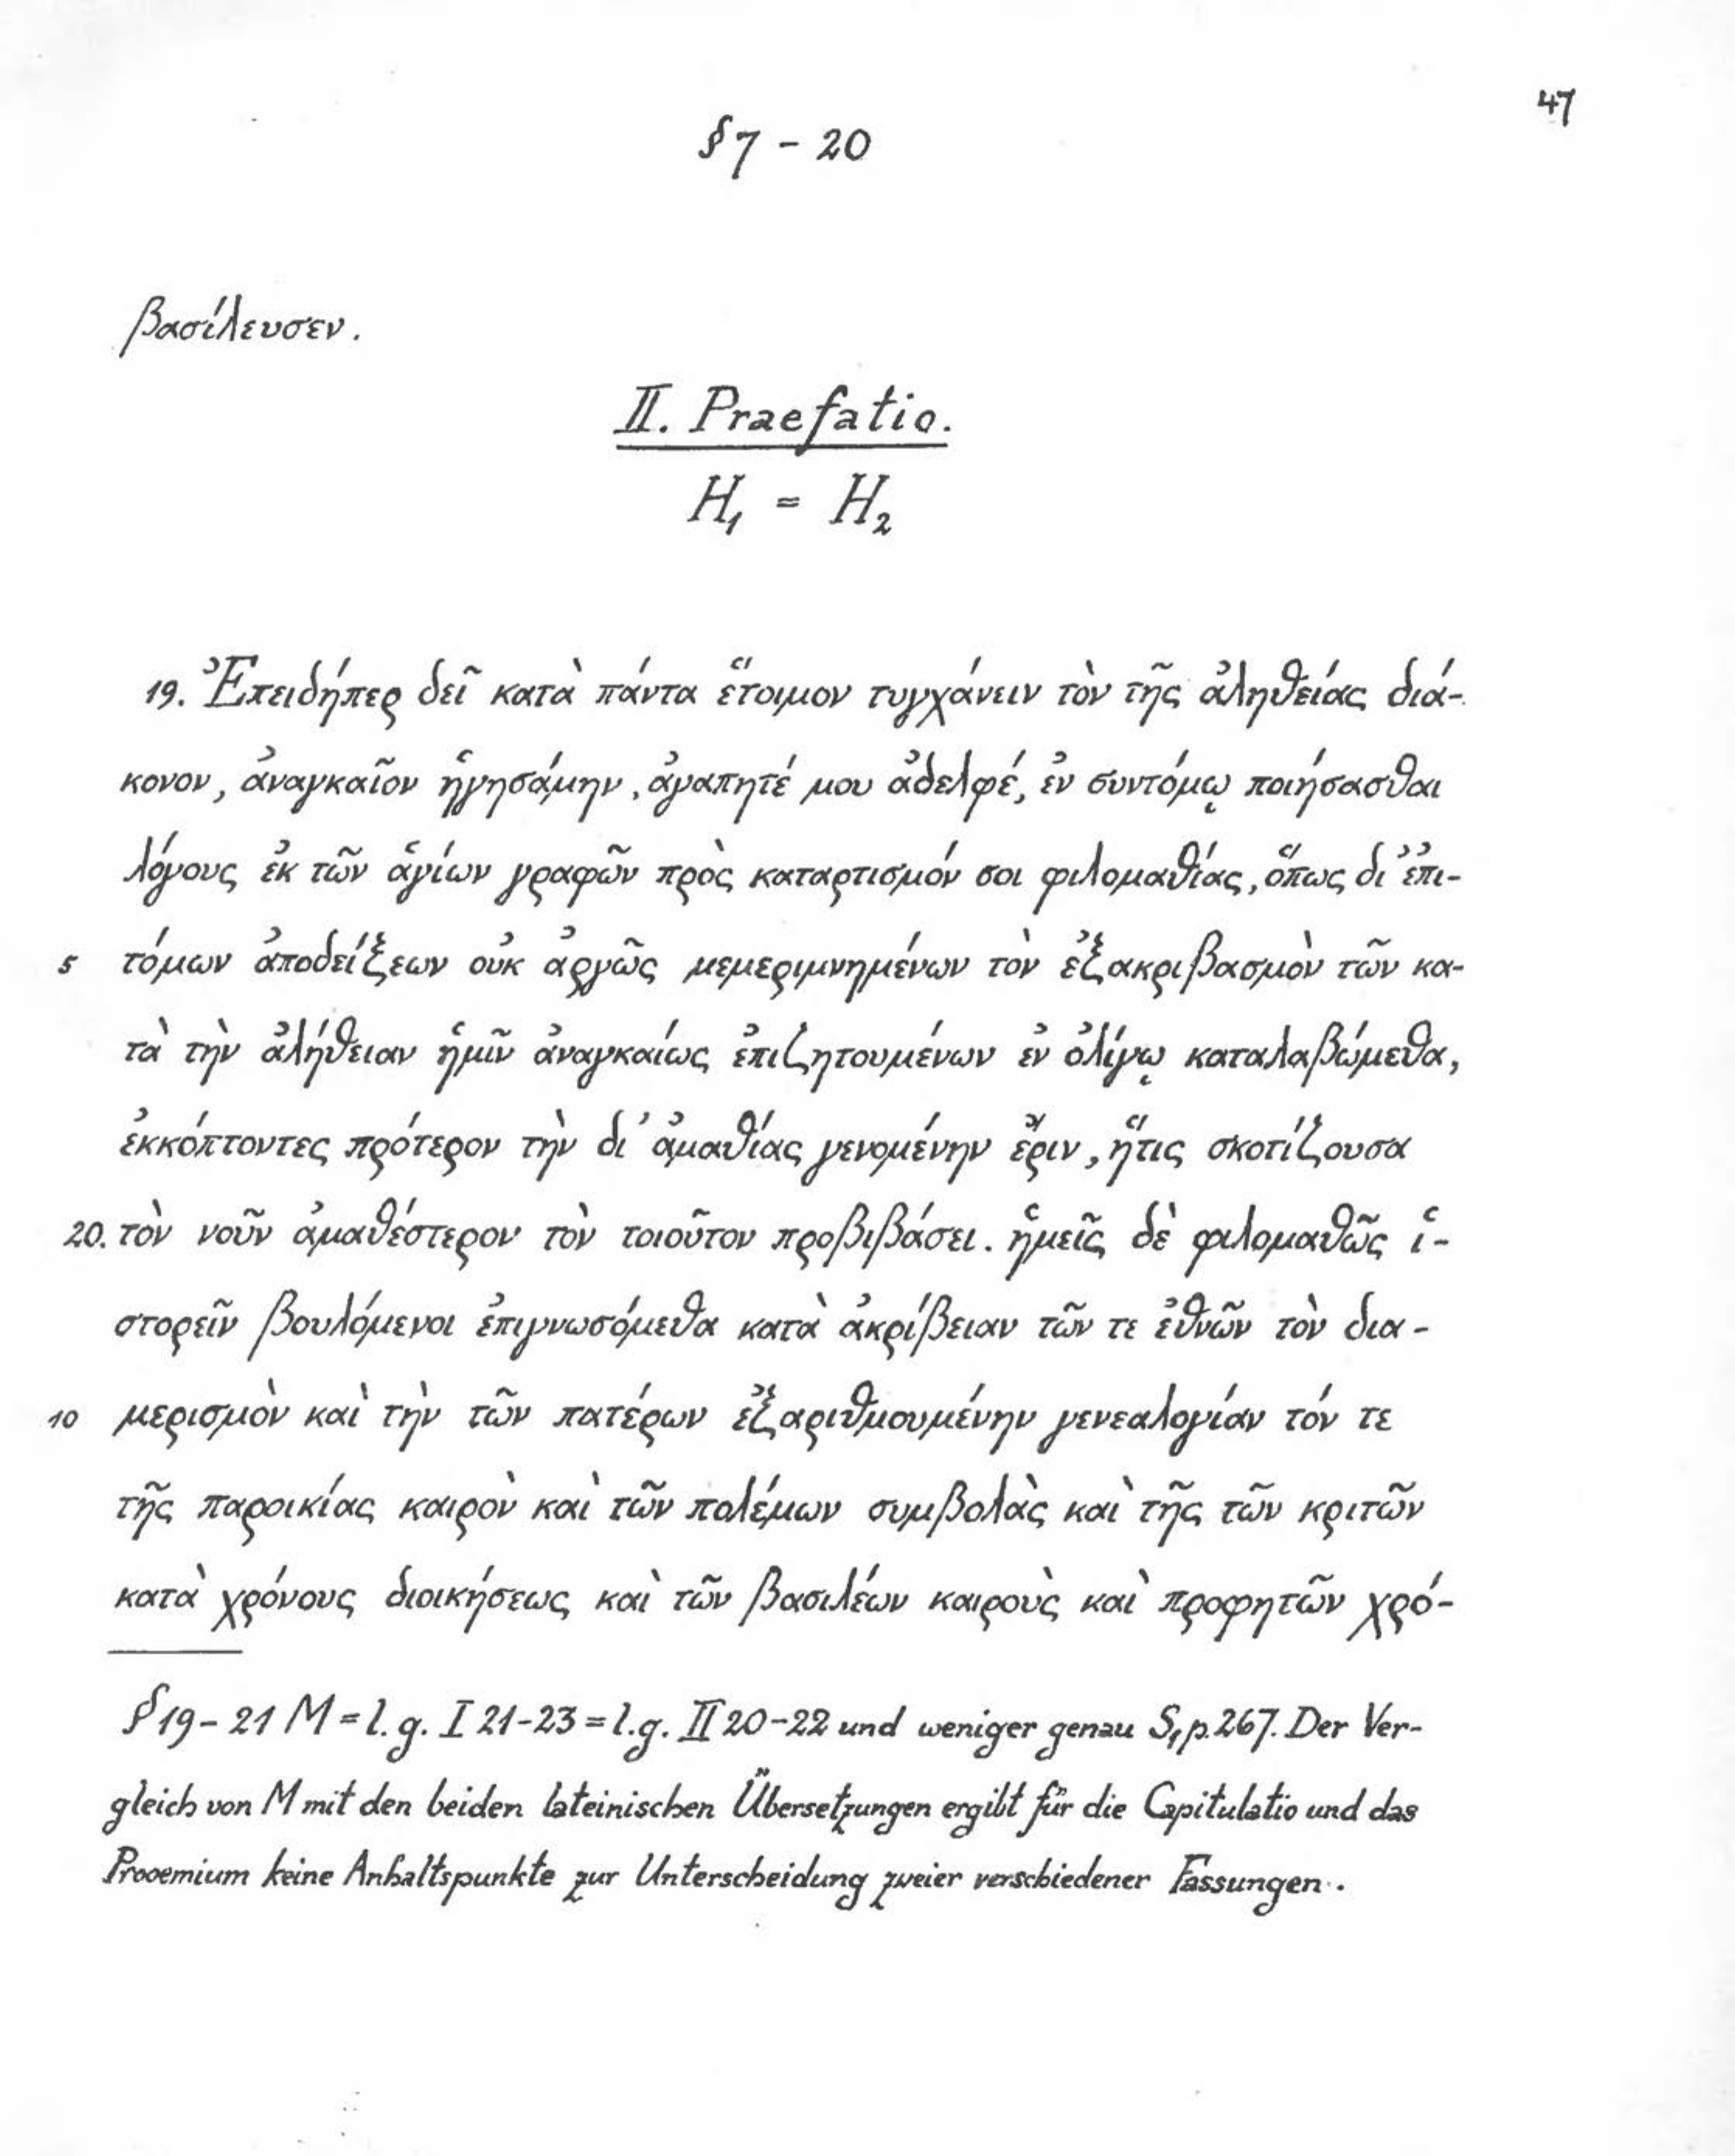 47
§ 7 - 20
βασίλευσεν.
II. Praefatio.
H₁ = H₂
19. Ἐπειδήπερ δεῖ κατὰ πάντα ἕτοιμον τυγχάνειν τὸν τῆς ἀληθείας διά-
κονον, ἀναγκαῖον ἡγησάμην, ἀγαπητέ μου ἀδελφέ, ἐν συντόμῳ ποιήσασθαι
λόγους ἐκ τῶν ἁγίων γραφῶν πρὸς καταρτισμόν σοι φιλομαθίας, ὅπως δι' ἐπι-
5 τόμων ἀποδείξεων οὐκ ἀργῶς μεμεριμνημένων τὸν ἐξακριβασμὸν τῶν κα-
τὰ τὴν ἀλήθειαν ἡμῖν ἀναγκαίως ἐπιζητουμένων ἐν ὀλίγῳ καταλαβώμεθα,
ἐκκόπτοντες πρότερον τὴν δι' ἀμαθίας γενομένην ἔριν, ἥτις σκοτίζουσα
20. τὸν νοῦν ἀμαθέστερον τὸν τοιοῦτον προβιβάσει. ἡμεῖς δὲ φιλομαθῶς ἱ-
στορεῖν βουλόμενοι ἐπιγνωσόμεθα κατὰ ἀκρίβειαν τῶν τε ἐθνῶν τὸν δια-
10 μερισμὸν καὶ τὴν τῶν πατέρων ἐξαριθμουμένην γενεαλογίαν τόν τε
τῆς παροικίας καιρὸν καὶ τῶν πολέμων συμβολὰς καὶ τῆς τῶν κριτῶν
κατὰ χρόνους διοικήσεως καὶ τῶν βασιλέων καιροὺς καὶ προφητῶν χρό-
§ 19-21 M = l.g. I 21-23 = l.g. II 20-22 und weniger genau S₁ p. 267. Der Ver-
gleich von M mit den beiden lateinischen Übersetzungen ergibt für die Capitulatio und das
Prooemium keine Anhaltspunkte zur Unterscheidung zweier verschiedener Fassungen.